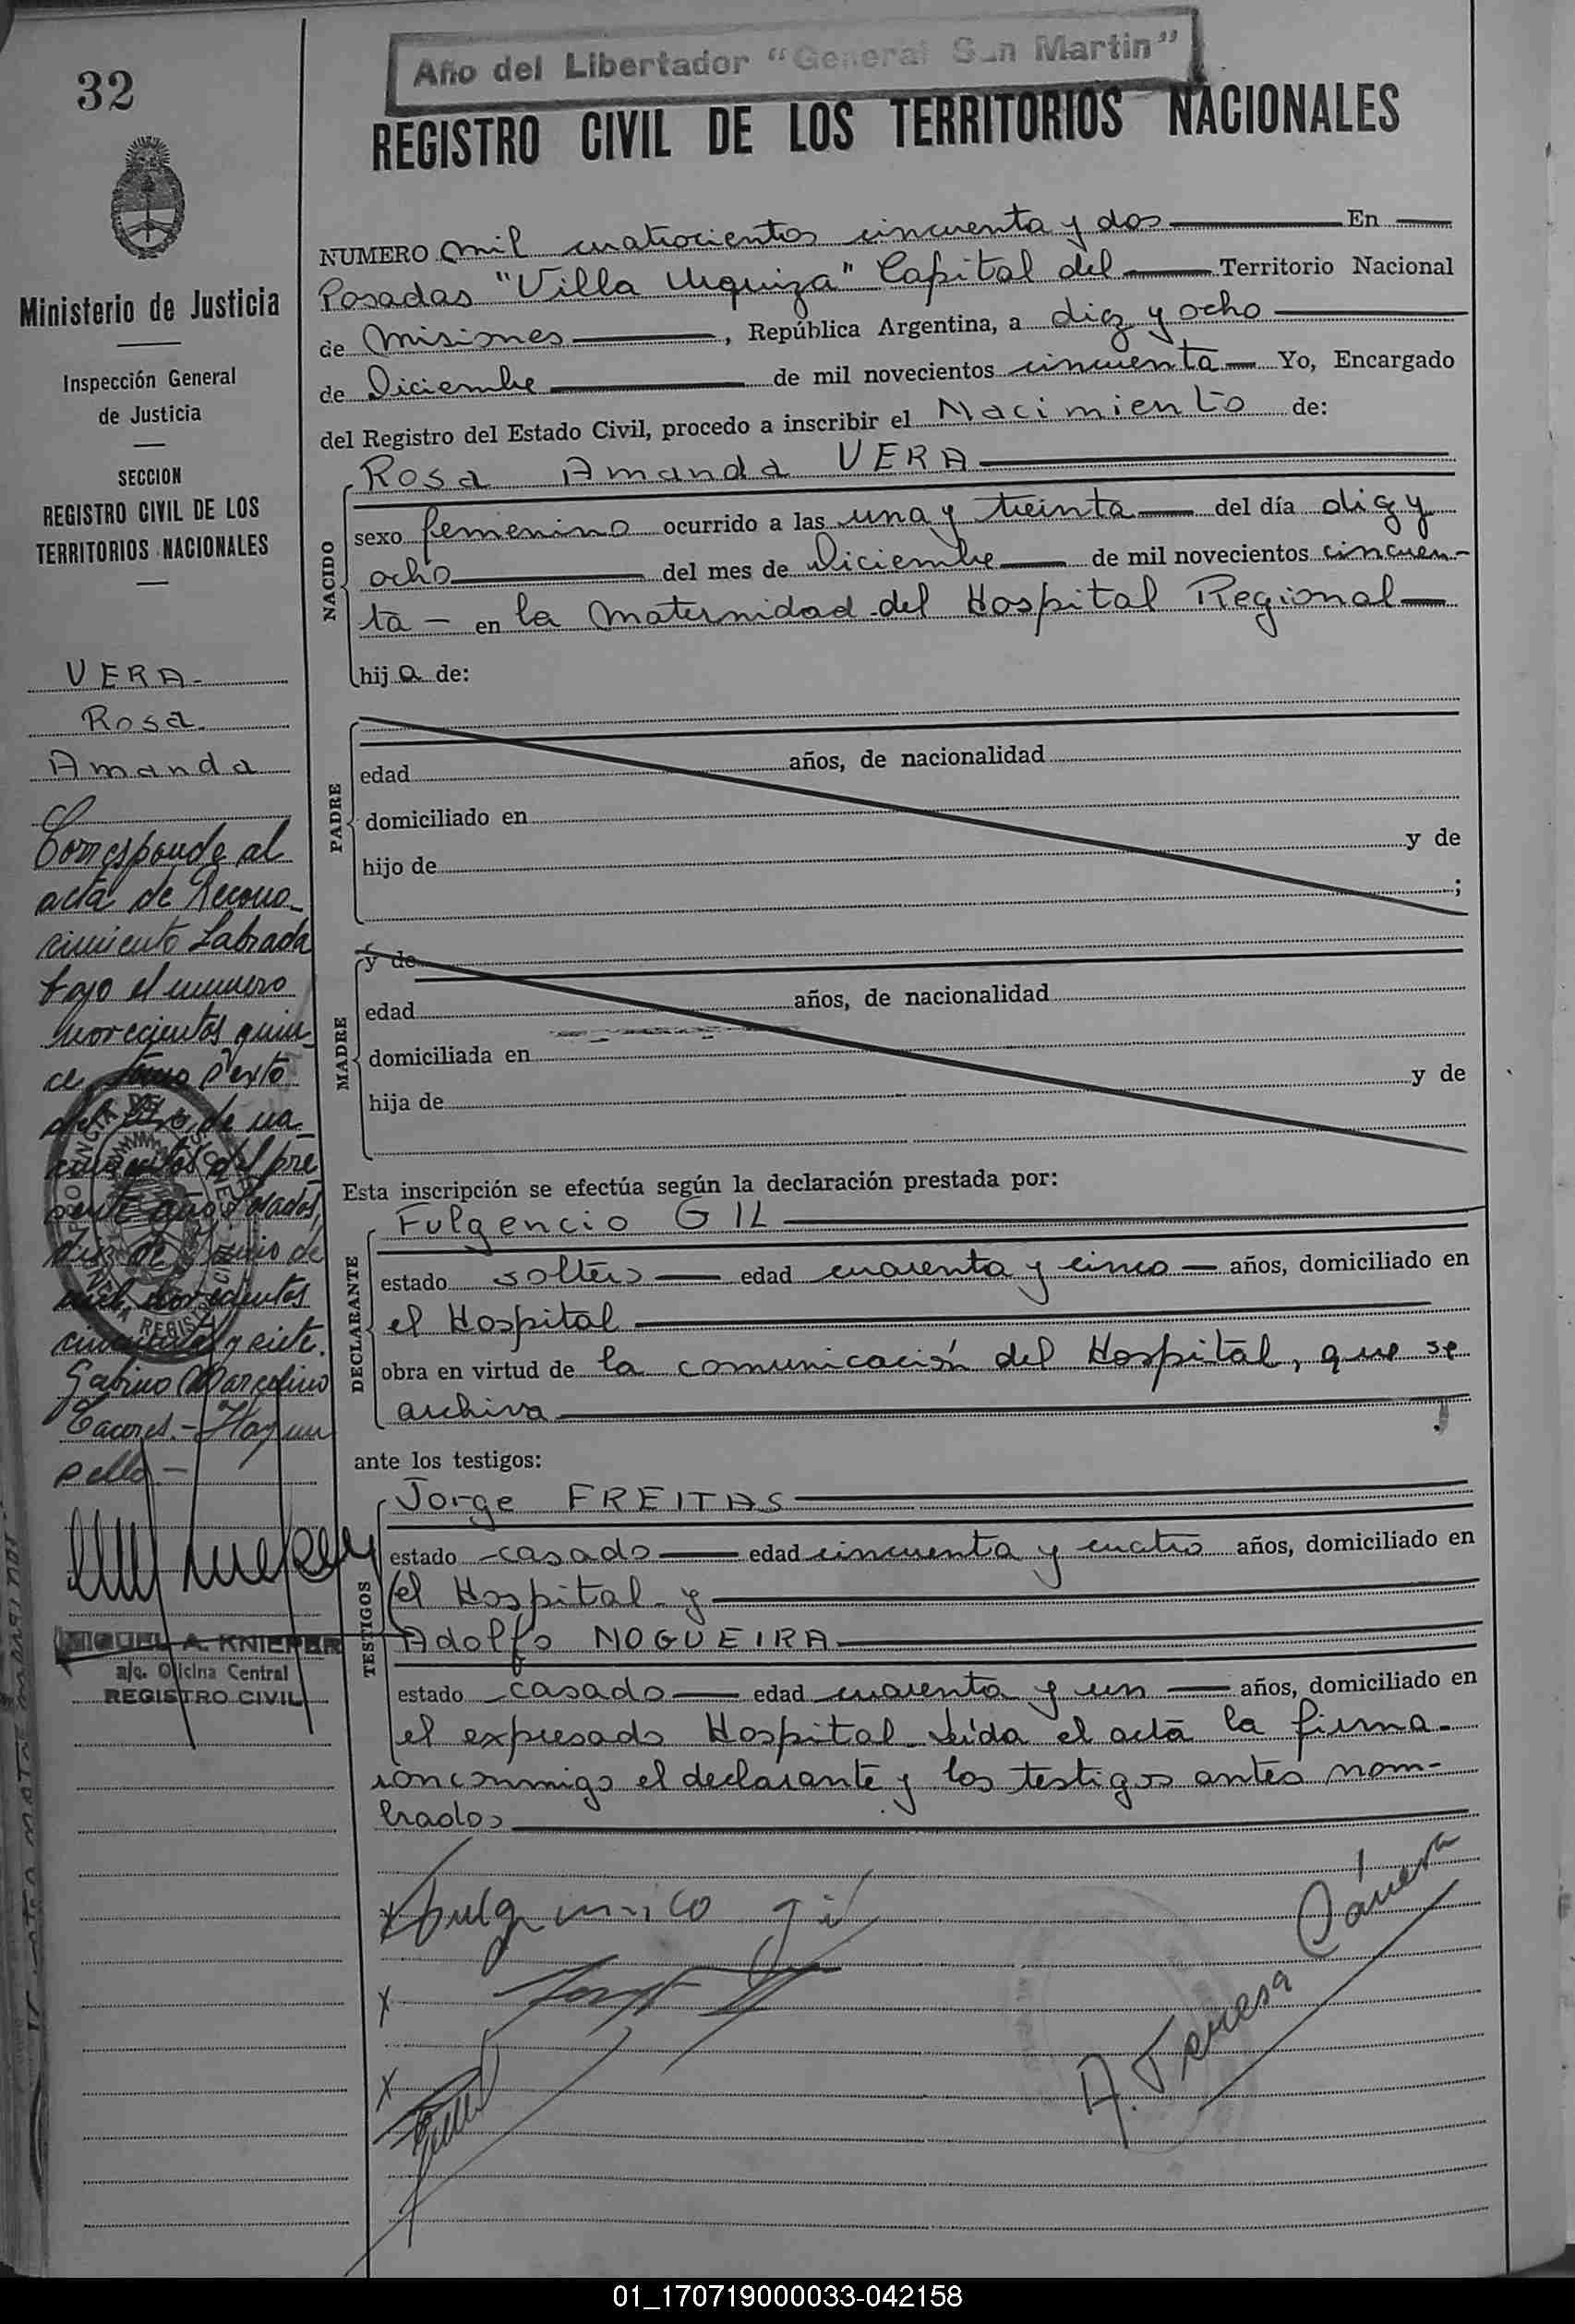 32
Año del Libertador "General San Martin"
REGISTRO CIVIL DE LOS TERRITORIOS NACIONALES
Ministerio de Justicia
Inspección General
de Justicia
SECCION
REGISTRO CIVIL DE LOS
TERRITORIOS NACIONALES
VERA-
Rosa
Amanda
Corresponde al
acta de Recono-
cimiento Labrada
bajo el numero
novecientos quin-
ce, tomo Sexto
del libro de na-
cimientos del pre
sente año Posadas,
diez de Junio de
mil novecientos
cincuenta y siete.
Gabino Marcelino
Caceres.- Hay un
sello.-
MIGUEL A. KNIEPER
a/c. Oficina Central
REGISTRO CIVIL
NUMERO mil cuatrocientos cincuenta y dos En
Posadas "Villa Urquiza" Capital del Territorio Nacional
de Misiones, República Argentina, a diez y ocho
de Diciembre de mil novecientos cincuenta Yo, Encargado
del Registro del Estado Civil, procedo a inscribir el Nacimiento de:
Rosa Amanda VERA
NACIDO
sexo femenino ocurrido a las una y treinta del día diez y
ocho del mes de Diciembre de mil novecientos cincuen-
ta - en la Maternidad del Hospital Regional
hija de:
PADRE
edad años, de nacionalidad
domiciliado en
hijo de y de
;
MADRE
y de
edad años, de nacionalidad
domiciliada en
hija de y de
Esta inscripción se efectúa según la declaración prestada por:
DECLARANTE
Fulgencio GIL
estado soltero edad cuarenta y cinco años, domiciliado en
el Hospital
obra en virtud de la comunicación del Hospital, que se
archiva
ante los testigos:
TESTIGOS
Jorge FREITAS
estado casado edad cincuenta y cuatro años, domiciliado en
el Hospital y
Adolfo NOGUEIRA
estado casado edad cuarenta y un años, domiciliado en
el expresado Hospital. Leída el acta la firma-
ron conmigo el declarante y los testigos antes nom-
brados
x Fulgencio Gil
x
x
A. Teresa Cánera
01_170719000033-042158